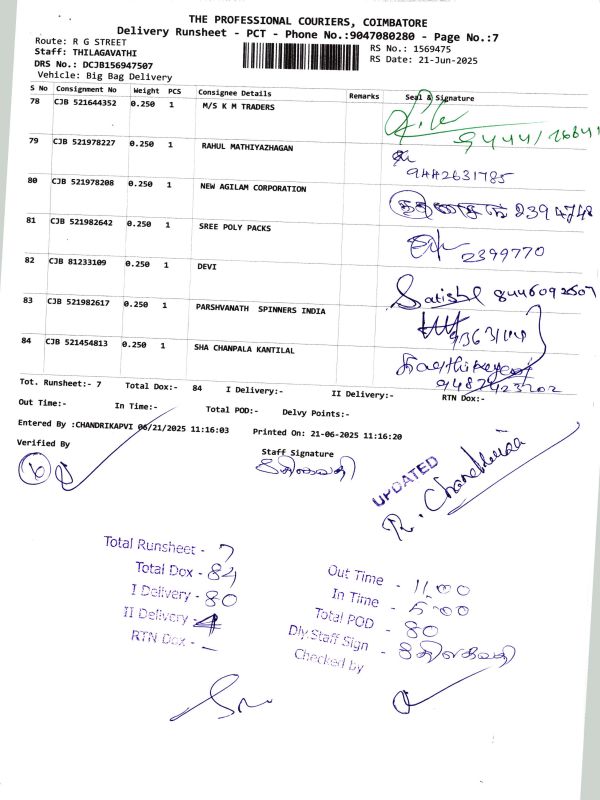 THE PROFESSIONAL COURIERS, COIMBATORE
Delivery Runsheet - PCT - Phone No.:9047080280 - Page No.:7
Route: R G STREET
RS No.: 1569475
Staff: THILAGAVATHI
RS Date: 21-Jun-2025
DRS No.: DCJB156947507
Vehicle: Big Bag Delivery
S No Consignment No Weight PCS Consignee Details Remarks Seal & Signature
78 CJB 521644352 0.250 1 M/S K M TRADERS
79 CJB 521978227 0.250 1 RAHUL MATHIYAZHAGAN
9442631785
80 CJB 521978208 0.250 1 NEW AGILAM CORPORATION 2394748
81 CJB 521982642 0.250 1 SREE POLY PACKS
2399770
82 CJB 81233109 0.250 1 DEVI
Satish 8446092507
83 CJB 521982617 0.250 1 PARSHVANATH SPINNERS INDIA
84 CJB 521454813 0.250 1 SHA CHANPALA KANTILAL
Karthikeyan
9487423202
Tot. Runsheet:- 7 Total Dox:- 84 I Delivery:- II Delivery:- RTN Dox:-
Out Time:- In Time:- Total POD:- Delvy Points:-
Entered By :CHANDRIKAPVI 06/21/2025 11:16:03 Printed On: 21-06-2025 11:16:20
Verified By
Staff Signature
UPDATED
R. Chandrikaa
Total Runsheet - 7
Total Dox - 84
I Delivery - 80
II Delivery - 4
RTN Dox - —
Out Time - 11.00
In Time - 5.00
Total POD - 80
Dly.Staff Sign -
Checked by